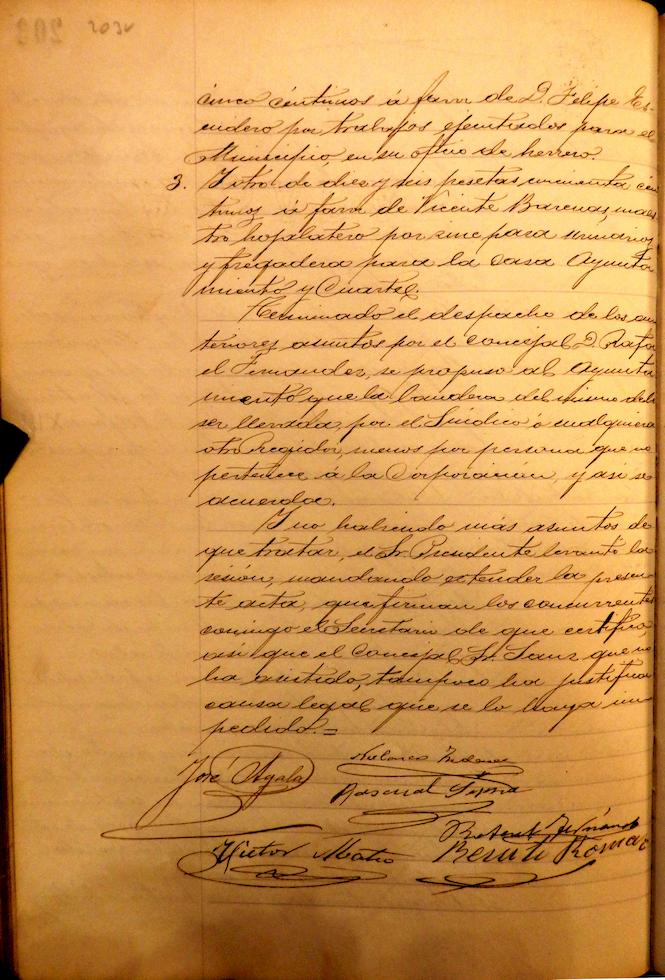 203v
cinco céntimos á favor de D. Felipe Es-
cudero por trabajos ejecutados para el
Municipio, en su oficio de herrero.
3. Y otro de diez y seis pesetas cincuenta cén
timos á favor de Vicente Barenas, maes
tro hojalatero por zinc para urinarios
y fregadera para la casa Ayunta
miento y Cuartel.
Terminado el despacho de los an
teriores asuntos por el concejal D. Rafa
el Fernandez, se propuso al Ayunta
miento que la bandera del mismo debe
ser llevada, por el Síndico ó cualquiera
otro Regidor, menos por persona que no
pertenece á la Corporación, y así se
acuerda.
Y no habiendo más asuntos de
que tratar, el Sr. Presidente levantó la
sesión, mandando extender la presen
te acta, que firman los concurrentes
conmigo el Secretario de que certifico,
así que el concejal Sr. Sanz que no
ha asistido, tampoco ha justifica
causa legal que se lo haya im
pedido.=
José Ayala
Pascual
Victor Mateo
Benito Roman